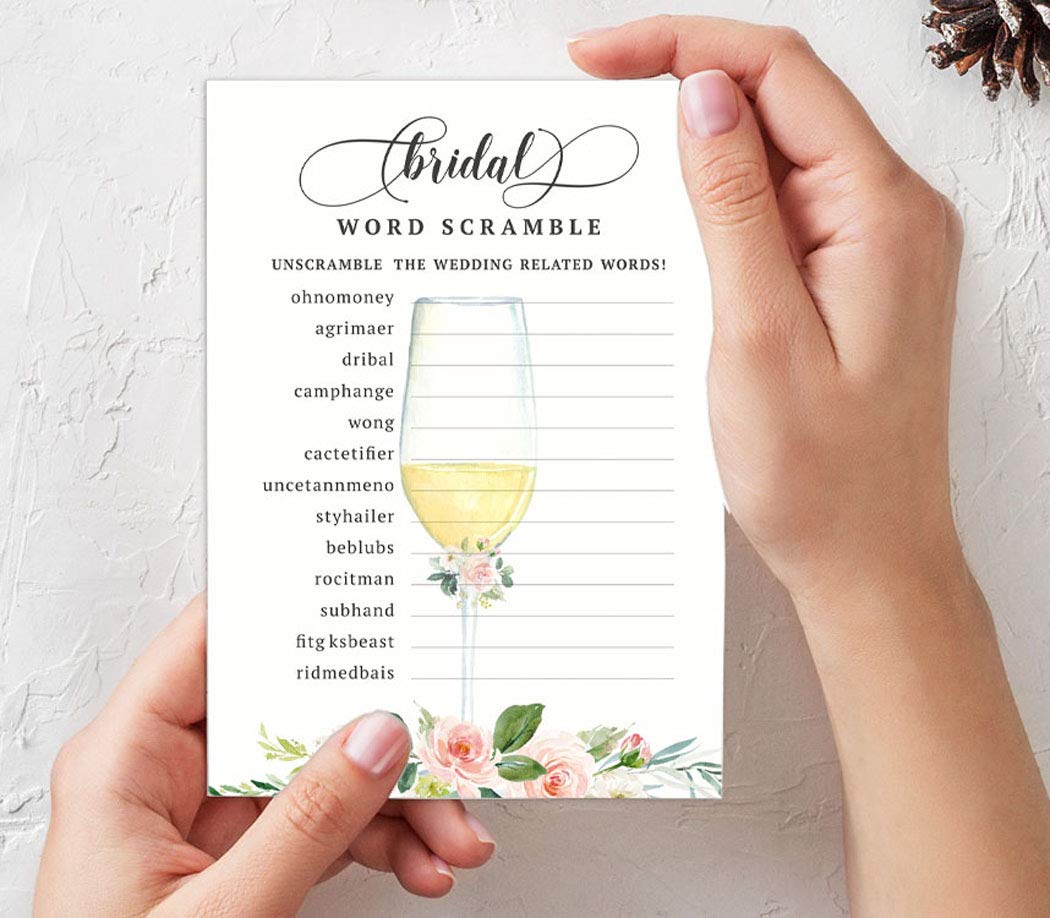 bridal
WORD SCRAMBLE
UNSCRAMBLE THE WEDDING RELATED WORDS!
ohnomoney
agrimaer
dribal
camphange
wong
cactetifier
uncetannmeno
styhailer
beblubs
rocitman
subhand
fitg ksbeast
ridmedbais